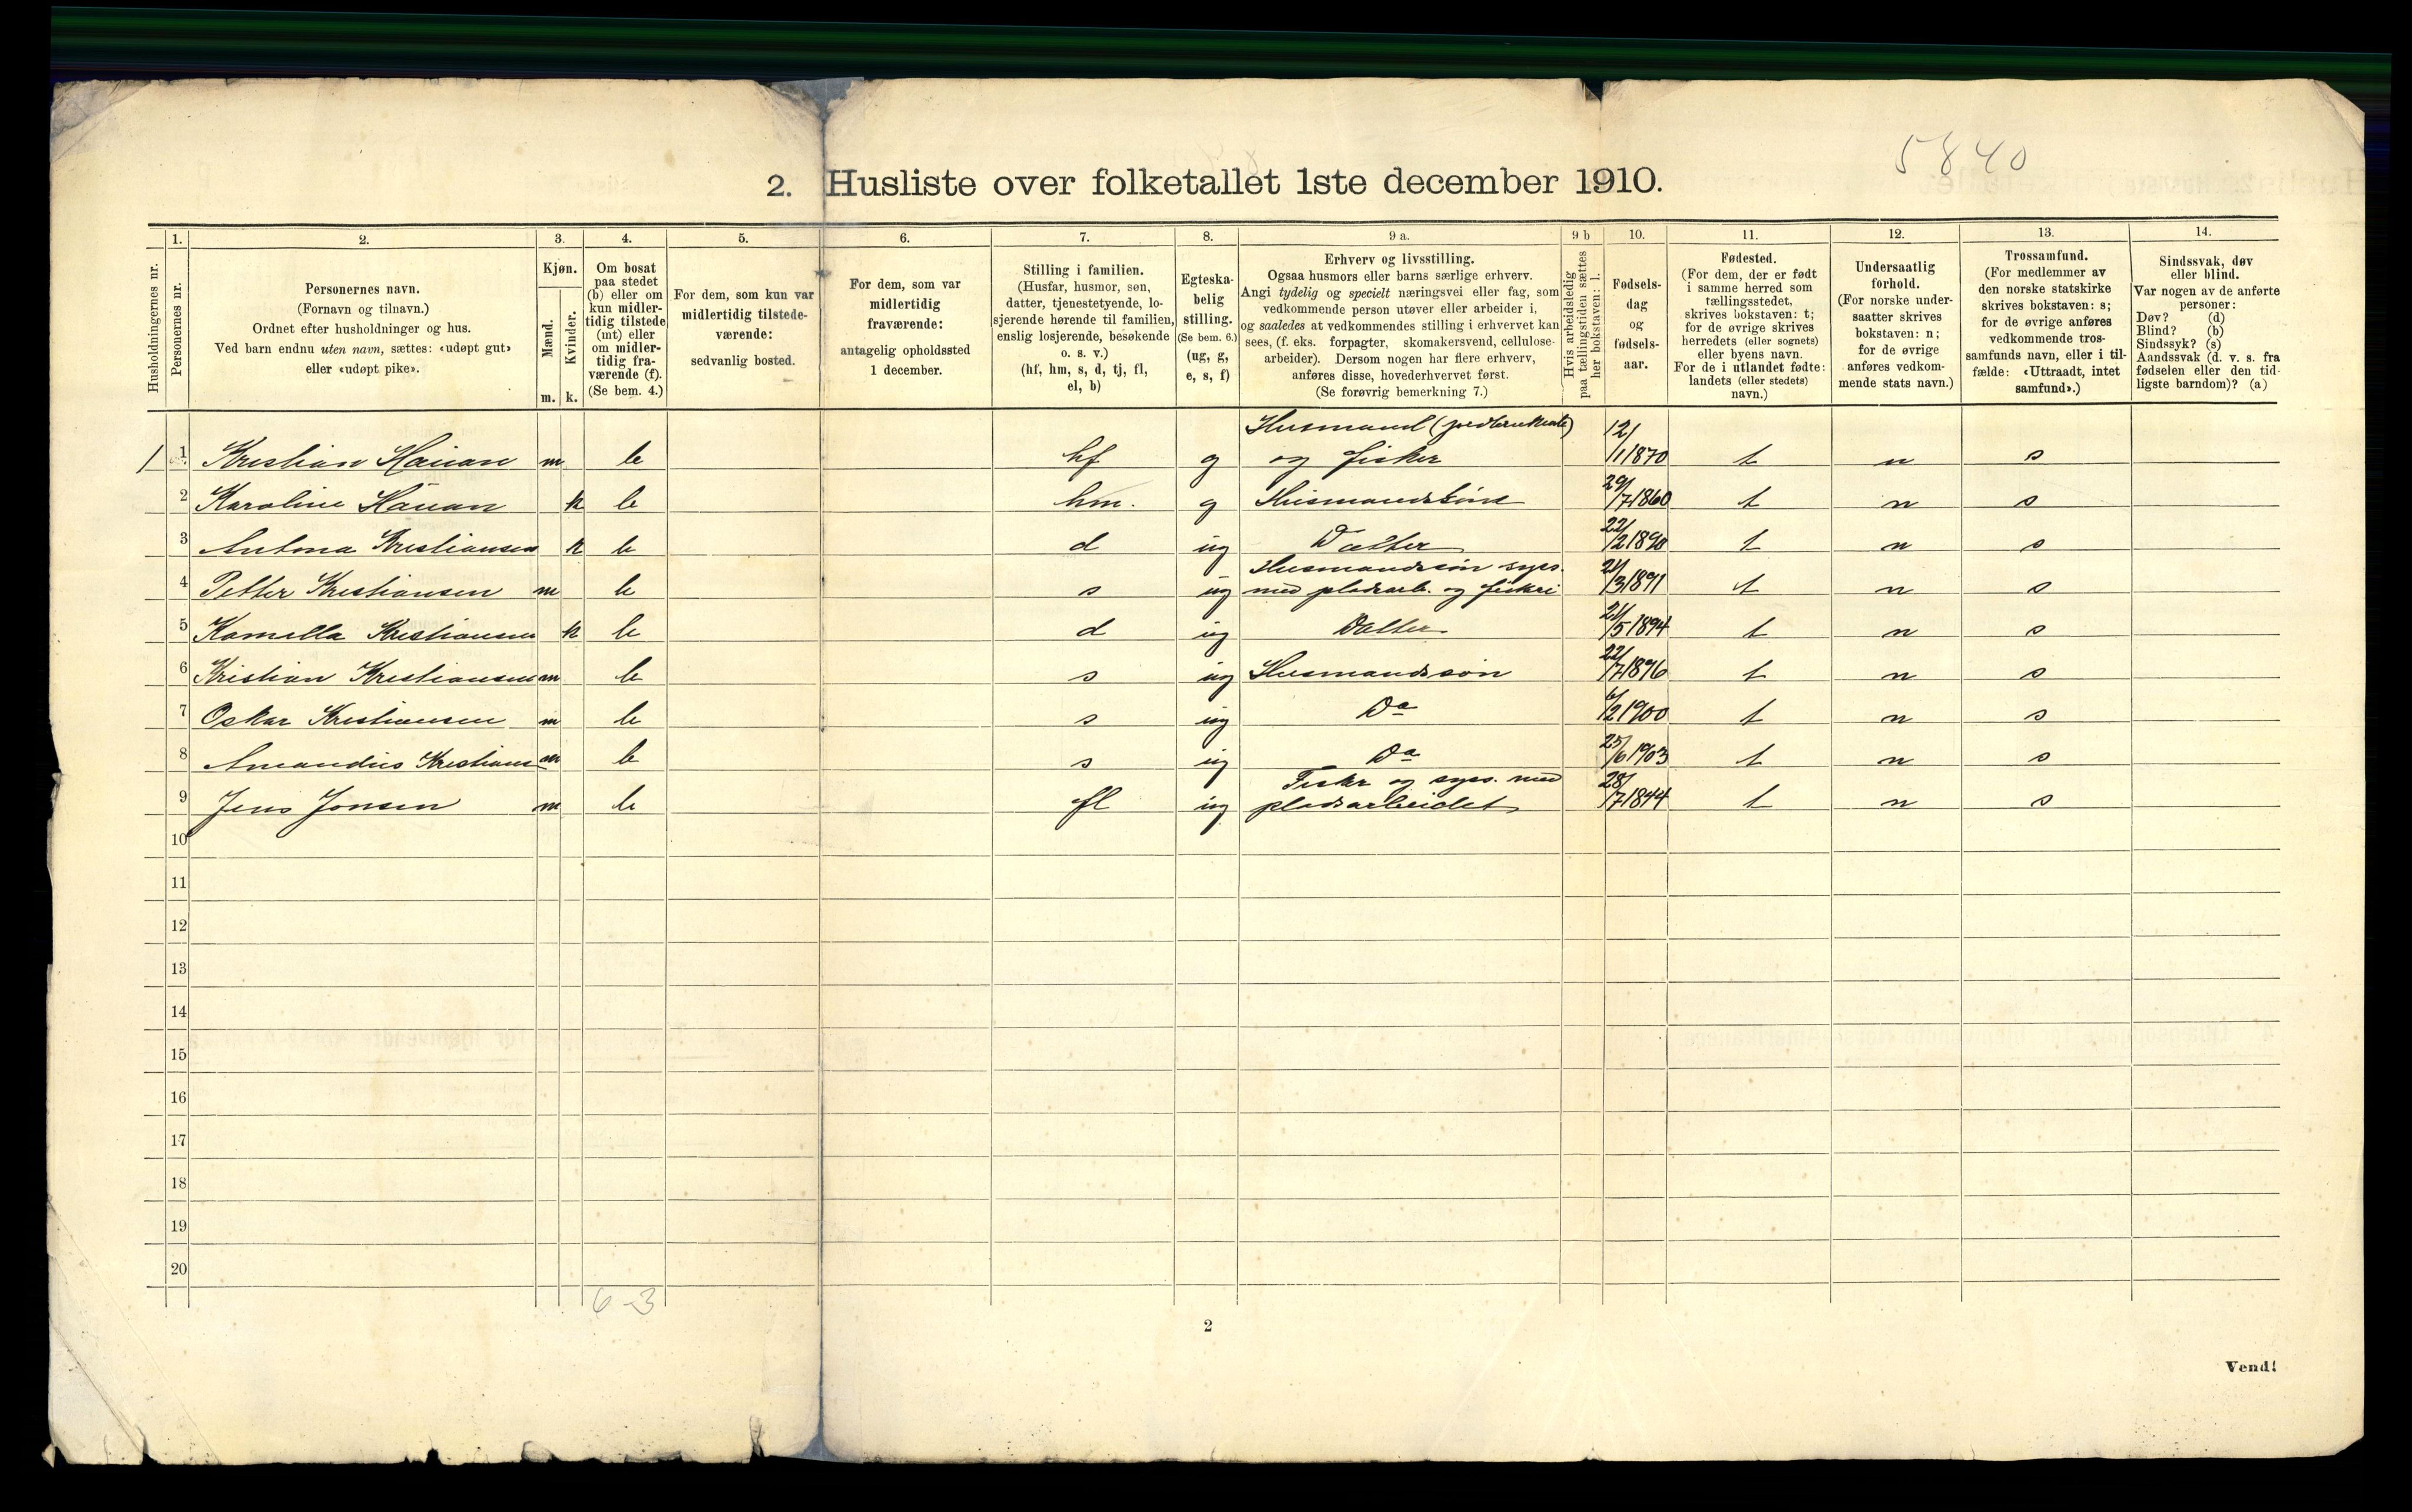 5840
2. Husliste over folketallet 1ste december 1910.
Husholdningernes nr.
1.
Personernes nr.
2.
Personernes navn.
(Fornavn og tilnavn.)
Ordnet efter husholdninger og hus.
Ved barn endnu uten navn, sættes: «udøpt gut»
eller «udøpt pike».
3.
Kjøn.
Mænd.
Kvinder.
m. k.
4.
Om bosat
paa stedet
(b) eller om
kun midler-
tidig tilstede
(mt) eller
om midler-
tidig fra-
værende (f).
(Se bem. 4.)
5.
For dem, som kun var
midlertidig tilstede-
værende:
sedvanlig bosted.
6.
For dem, som var
midlertidig
fraværende:
antagelig opholdssted
1 december.
7.
Stilling i familien.
(Husfar, husmor, søn,
datter, tjenestetyende, lo-
sjerende hørende til familien,
enslig losjerende, besøkende
o. s. v.)
(hf, hm, s, d, tj, fl,
el, b)
8.
Egteska-
belig
stilling.
(Se bem. 6.)
(ug, g,
e, s, f)
9 a.
Erhverv og livsstilling.
Ogsaa husmors eller barns særlige erhverv.
Angi tydelig og specielt næringsvei eller fag, som
vedkommende person utøver eller arbeider i,
og saaledes at vedkommendes stilling i erhvervet kan
sees, (f. eks. forpagter, skomakersvend, cellulose-
arbeider). Dersom nogen har flere erhverv,
anføres disse, hovederhvervet først.
(Se forøvrig bemerkning 7.)
9 b
Hvis arbeidsledig
paa tællingstiden sættes
her bokstaven: l.
10.
Fødsels-
dag
og
fødsels-
aar.
11.
Fødested.
(For dem, der er født
i samme herred som
tællingsstedet,
skrives bokstaven: t;
for de øvrige skrives
herredets (eller sognets)
eller byens navn.
For de i utlandet fødte:
landets (eller stedets)
navn.)
12.
Undersaatlig
forhold.
(For norske under-
saatter skrives
bokstaven: n;
for de øvrige
anføres vedkom-
mende stats navn.)
13.
Trossamfund.
(For medlemmer av
den norske statskirke
skrives bokstaven: s;
for de øvrige anføres
vedkommende tros-
samfunds navn, eller i til-
fælde: «Uttraadt, intet
samfund».)
14.
Sindssvak, døv
eller blind.
Var nogen av de anførte
personer:
Døv? (d)
Blind? (b)
Sindssyk? (s)
Aandssvak (d. v. s. fra
fødselen eller den tid-
ligste barndom)? (a)
1 1 Kristian Hauan m b hf g Husmand (jordbrukende) og fisker 12/1 1870 t n s
2 Karoline Hauan k b hm. g Husmandskone 29/7 1860 t n s
3 Antona Kristiansen k b d ug Datter 22/2 1890 t n s
4 Petter Kristiansen m b s ug Husmandssøn syss. med pladsarb. og fiskeri 21/3 1891 t n s
5 Kamilla Kristiansen k b d ug Datter 21/5 1894 t n s
6 Kristian Kristiansen m b s ug Husmandssøn 22/7 1896 t n s
7 Oskar Kristiansen m b s ug Do 6/2 1900 t n s
8 Amandus Kristians m b s ug Do 25/6 1903 t n s
9 Jens Jonsen m b fl ug Fisker og syss. med pladsarbeidet 28/7 1844 t n s
10
11
12
13
14
15
16
17
18
19
20
6-3
2
Vend!